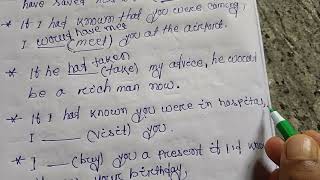 have saved
* If I had known that you were coming,
I would have met (meet) you at the airport.
* If he had taken (take) my advice, he would
be a rich man now.
* If I had known you were in hospital,
I ___ (visit) you.
* I ___ (buy) you a present if I'd know
your birthday,